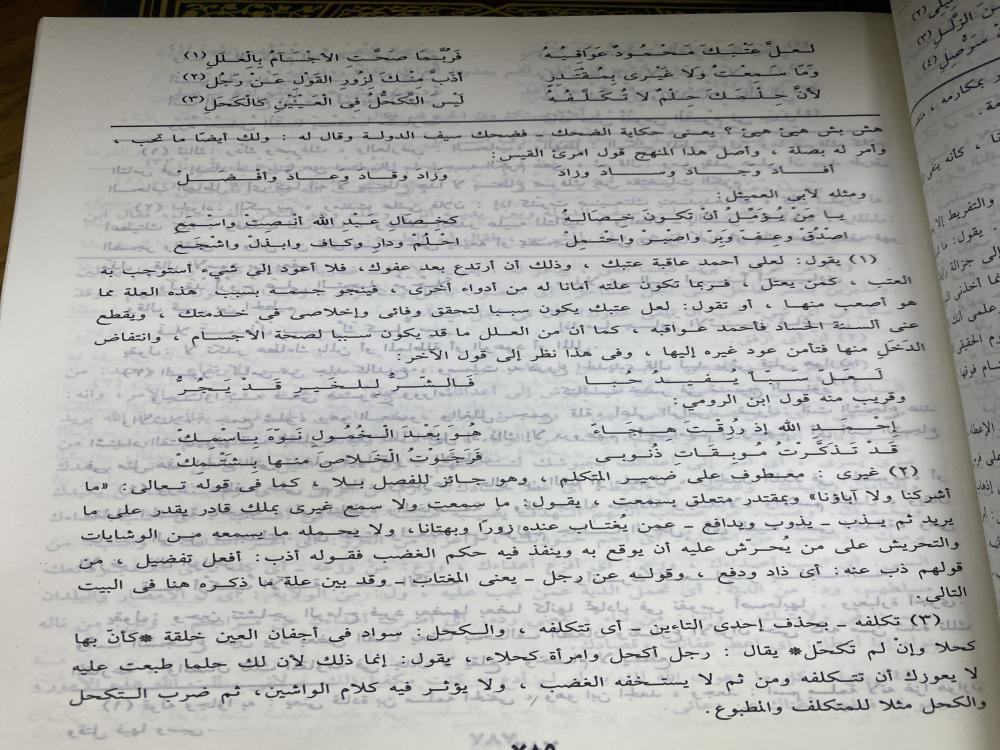 لَعَلَّ عَتْبَكَ مَحْمُودٌ عَوَاقِبُهُ فَرُبَّمَا صَحَّتِ الأَجْسَامُ بِالْعِلَلِ (١)
وَمَا سَمِعْتُ وَلَا غَيْرِى بِمُقْتَدِرٍ أَذَبَّ مِنْكَ لِزُورِ الْقَوْلِ عَنْ رَجُلِ (٢)
لِأَنَّ حِلْمَكَ حِلْمٌ لَا تُكَلَّفُهُ لَيْسَ التَّكَحُّلُ فِى الْعَيْنَيْنِ كَالْكَحَلِ (٣)
هش بش هيئ هيئ ؟ يعنى حكاية الضحك ــ فضحك سيف الدولة وقال له : ولك أيضًا ما تحب ،
وأمر له بصلة ، وأصل هذا المنهج قول امرئ القيس:
أفَــادَ وَجَــادَ وَســاد وزاد وَزادَ وَقــادَ وَعــادَ وَأفْضَــلْ
ومثله لأبى العميثل:
يــا مَنْ يُــؤَمِّلُ أَنْ تَكــونَ خِصَالُــهُ كَخِصَالِ عَبْدِ الله أَنْصِتْ وَاسْمَعِ
اصْدُقْ وَعِــفَّ وَبَرَّ واصْبِــرْ واحْتَمِــلْ احْلُمْ وَدارِ وكافِ وابْذِلْ واشْجَعِ
(١) يقول: لعلى أحمد عاقبة عتبك ، وذلك أن أرتدع بعد عفوك، فلا أعود إلى شىء أستوجب به
العتب ، كمن يعتل ، فربما تكون علته أمانا له من أدواء أخرى ، فينجو جسمه بسبب هذه العلة مما
هو أصعب منهــا ، أو تقول: لعل عتبك يكون سببا لتحقق وفائى وإخلاصى فى خــدمتك ، ويقطع
عنى ألسنة الحساد فأحمد عـواقبه ، كما أن من العلل ما قد يكون سببا لصحة الأجســام ، وانتفاض
الدَخَلِ منها فتأمن عود غيره إليها ، وفى هذا نظر إلى قول الآخر:
لَــعَــلَ سَــبًّـا يُــفــيــدُ حُــبــا فَــالـشَّــرُّ لِــلـخَـيـرِ قَــدْ يَــجُــرُّ
وقريب منه قول ابن الرومي:
إحْــمِــدِ الله إذ رُزِقْــتَ هِــجَــاءً هُــوَ بَعْــدَ الْخُمُــولِ نَــوَّهَ بِــاسْمِــكْ
قَــدْ تَــذَكَّــرْتُ مُــوبِــقَــاتِ ذُنُــوبـي فَرَجَــوْتُ الْخَــلَاصَ مِنهــا بِــشَتْمِــكْ
(٢) غيرى : معــطوف على ضمير المتكلم ، وهو جــائز للفصل بــلا ، كما فى قوله تعــالى: «ما
أشركنا ولا آباؤنا» وبمقتدر متعلق بسمعت ، يقــول: ما سمعت ولا سمع غيرى بملك قادر يقدر على ما
يريد ثم يــذب ــ يذوب ويدافع ــ عمن يُغتــاب عنده زورًا وبهتانا، ولا يحملــه ما يسمعه مــن الوشايات
والتحريش على من يُحــرّش عليه أن يوقع به وينفذ فيه حكم الغضب فقـوله أذب: أفعل تفضيل ، من
قولهم ذب عنه: أى ذاد ودفع ، وقولــه عن رجل ــ يعنى المغتاب ــ وقد بين علة ما ذكــره هنا فى البيت
التالى.
(٣) تكلفه ــ بحذف إحدى التاءين ــ أى تتكلفه ، والــكحل: سواد فى أجفان العين خلقة *كأنّ بها
كحلا وإنْ لم تكحّل* يقال : رجل أكحل وامرأة كحلاء ، يقول: إنما ذلك لأن لك حلما طبعت عليه
لا يعوزك أن تتكلفه ومن ثم لا يستــخفه الغضب ، ولا يؤثــر فيه كلام الواشين، ثم ضرب التــكحل
والكحل مثلا للمتكلف والمطبوع.